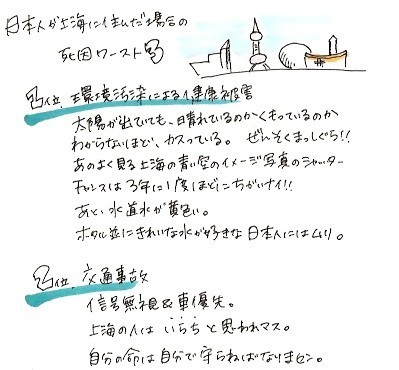 日本人が上海に住んだ場合の
死因ワースト3
3位. 環境汚染による健康被害
太陽が出ていても、晴れているのかくもっているのか
わからないほど、カスっている。 ぜんそくまっしぐら!!
あのよく見る上海の青い空のイメージ写真のシャッター
チャンスは3年に1度ほどこちがいナイ!!
あと、水道水が黄色い。
ホタル並にきれいな水が好きな日本人にはムリ。
2位. 交通事故
信号無視&車優先。
上海の人はいらちと思われマス。
自分の命は自分で守らねばなりまセン。